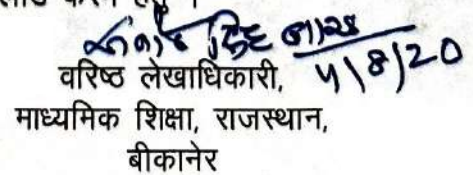 4/8/20
वरिष्ठ लेखाधिकारी,
माध्यमिक शिक्षा, राजस्थान,
बीकानेर